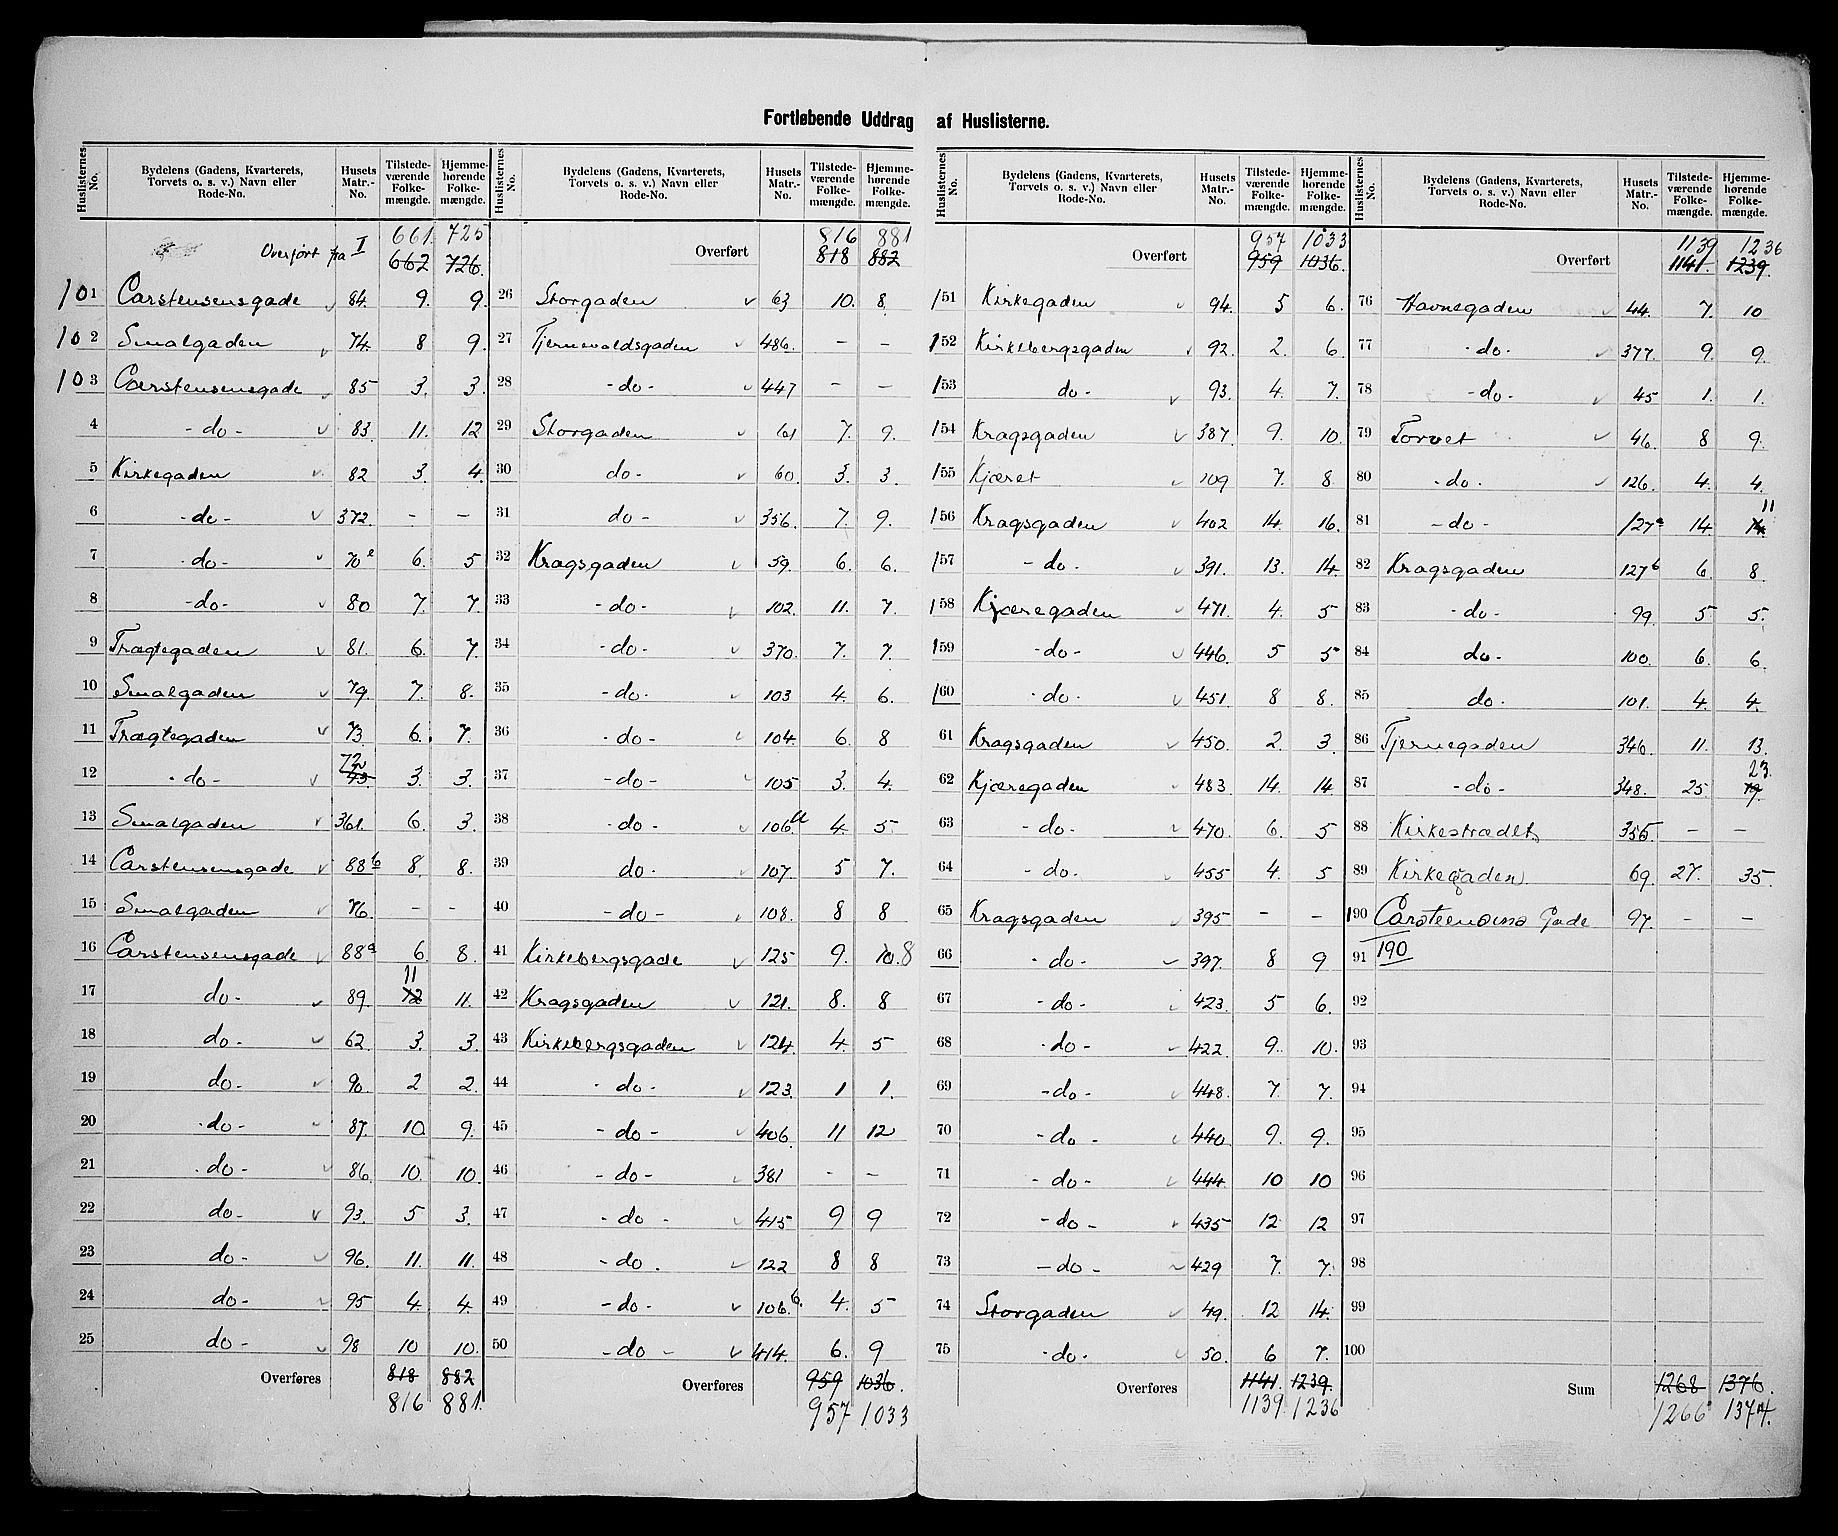 Fortløbende Uddrag af Huslisterne.
Huslisternes No. | Bydelens (Gadens, Kvarterets, Torvets o. s. v.) Navn eller Rode-No. | Husets Matr.-No. | Tilstedeværende Folkemængde. | Hjemmehørende Folkemængde.
Overført fra I 661. 725
662 726.
101 Carstensensgade 84. 9. 9.
102 Smalgaden 74. 8 9.
103 Carstensensgade 85 3. 3.
4 - do - 83. 11. 12
5 Kirkegaden 82 3. 4.
6 - do - 372. - -
7 - do - 70 6. 5
8 - do - 80 7. 7.
9 Trægtegaden 81. 6. 7.
10 Smalgaden 79. 7. 8.
11 Trægtegaden 73. 6. 7.
12 - do - 72 3. 3.
13 Smalgaden 361. 6. 3.
14 Carstensensgade 88b 8. 8.
15 Smalgaden 76. - -
16 Carstensensgade 88a 6. 8.
17 do - 89. 12 11 11.
18 do - 62 3. 3.
19 do - 90. 2 2.
20 - do - 87. 10. 9.
21 - do - 86. 10. 10.
22 do - 93. 5 3.
23 do - 96. 11. 11.
24 do - 95 4. 4.
25 do - 98 10 10.
Overføres 818 882
816 881.
Huslisternes No. | Bydelens (Gadens, Kvarterets, Torvets o. s. v.) Navn eller Rode-No. | Husets Matr.-No. | Tilstedeværende Folkemængde. | Hjemmehørende Folkemængde.
816 881
Overført 818 882
26 Storgaden 63 10. 8.
27 Tjernevoldsgaden 486. - -
28 - do - 447 - -
29 Storgaden 61 7. 9.
30 do - 60. 3. 3.
31 do - 356. 7. 9.
32 Kragsgaden 59. 6. 6.
33 - do - 102. 11. 7.
34 - do - 370. 7. 7.
35 - do - 103 4. 6.
36 - do - 104. 6. 8
37 - do - 105 3. 4.
38 - do - 106a 4. 5
39 do - 107. 5 7.
40 - do - 108. 8 8
41 Kirkebergsgade 125 9. 10. 8
42 Kragsgaden 121. 8. 8
43 Kirkebergsgaden 124. 4. 5
44 - do - 123. 1 1.
45 - do - 406. 11 12
46 - do - 381 - -
47 - do - 415 9 9
48 - do - 122 8 8
49 - do - 106b. 4. 5
50 - do - 414. 6. 9
Overføres 959 1036.
957 1033
Huslisternes No. | Bydelens (Gadens, Kvarterets, Torvets o. s. v.) Navn eller Rode-No. | Husets Matr.-No. | Tilstedeværende Folkemængde. | Hjemmehørende Folkemængde.
957 1033
Overført 959 1036.
151 Kirkegaden 94. 5 6.
152 Kirkebergsgaden 92. 2. 6.
153 do - 93. 4. 7.
154 Kragsgaden 387. 9. 10.
155 Kjæret 109 7. 8
156 Kragsgaden 402 14. 16.
157 - do - 391. 13. 14.
158 Kjæregaden 471. 4. 5
159 - do - 446. 5 5
160 - do - 451 8 8.
61 Kragsgaden 450. 2. 3.
62 Kjæregaden 483 14. 14
63 - do - 470. 6. 5
64 - do - 455 4. 5
65 Kragsgaden 395 - -
66 - do - 397. 8 9
67 - do - 423. 5 6.
68 - do - 422 9. 10.
69 - do - 448. 7. 7.
70 - do - 440. 9. 9.
71 - do - 444. 10 10
72 - do - 435 12 12
73 - do - 429 7. 7.
74 Storgaden 49. 12 14.
75 - do - 50. 6 7.
Overføres 1141. 1239.
1139. 1236
Huslisternes No. | Bydelens (Gadens, Kvarterets, Torvets o. s. v.) Navn eller Rode-No. | Husets Matr.-No. | Tilstedeværende Folkemængde. | Hjemmehørende Folkemængde.
1139 1236
Overført 1141. 1239.
76 Havnegaden 44. 7. 10
77 - do - 377. 9. 9.
78 - do - 45 1. 1.
79 Torvet 46. 8 9.
80 - do - 126. 4. 4.
81 - do - 127a 14. 14 11
82 Kragsgaden 127b 6. 8.
83 - do - 99. 5 5.
84 do - 100. 6. 6.
85 do - 101. 4. 4.
86 Tjernegaden 346. 11. 13.
87 - do - 348. 25 19. 23.
88 Kirkestrædet 355. - -
89 Kirkegaden 69. 27. 35.
190 Carsteensens Gade 97. - -
91 190
92
93
94
95
96
97
98
99
100
Sum 1268 1376.
1266 1374.